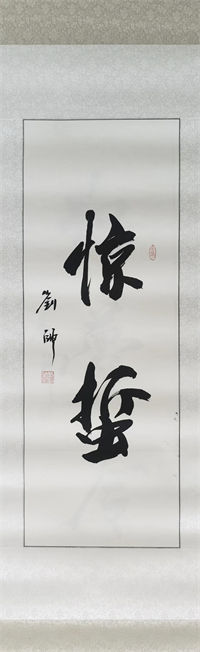 惊
蛰
劉
師